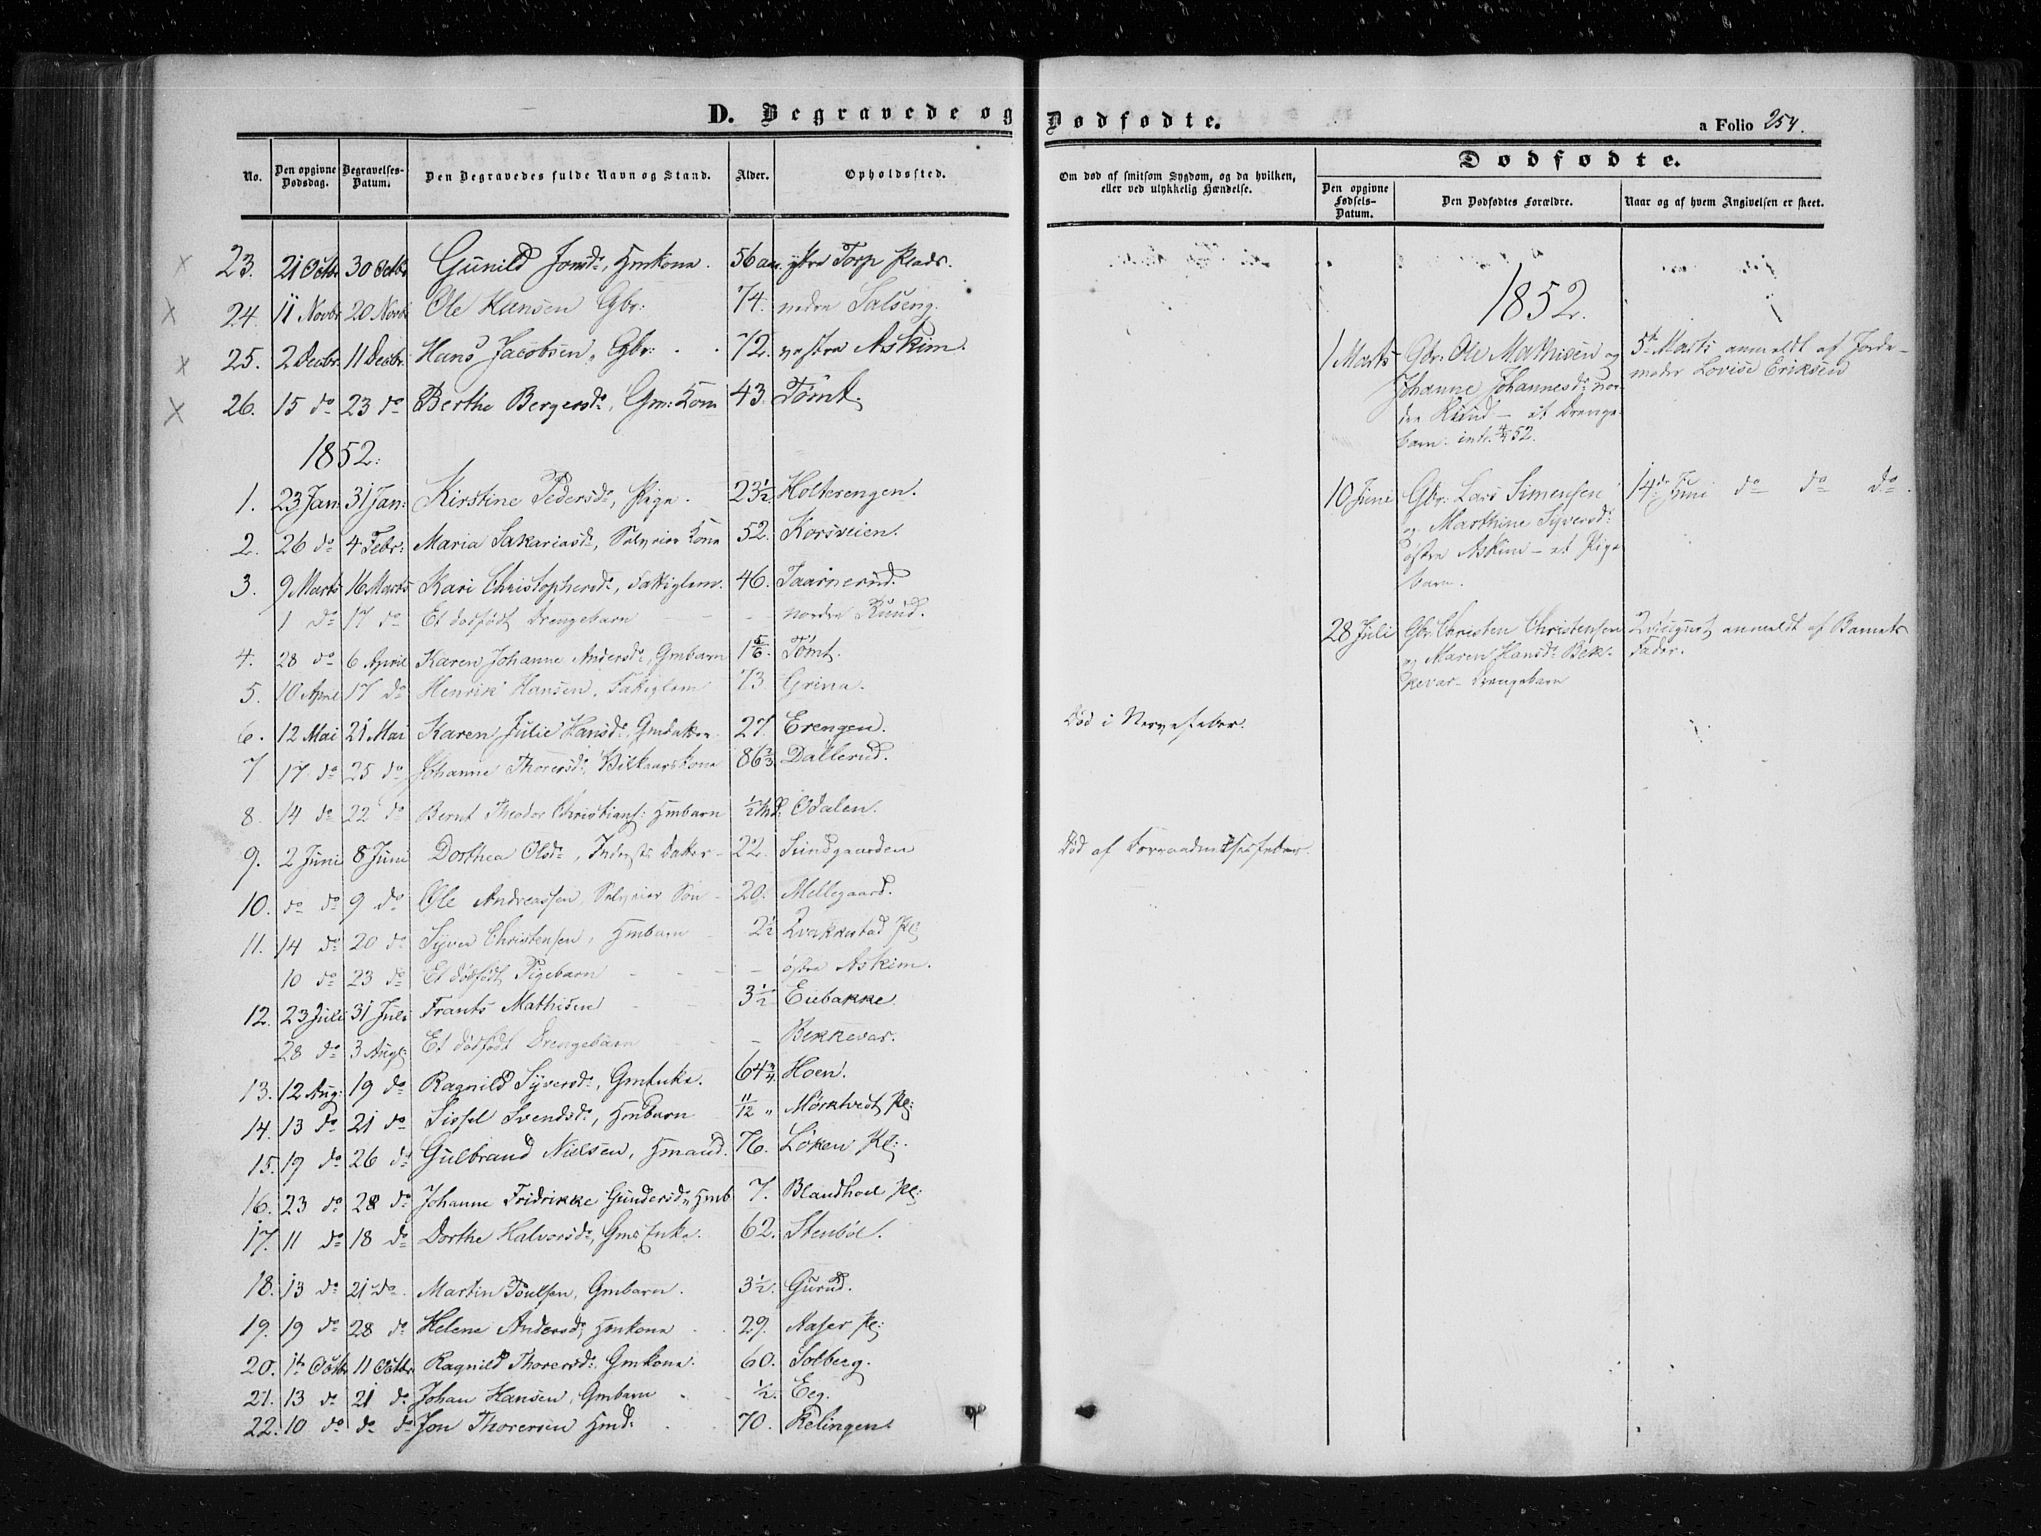 D. Begravede og Dødfødte.
a Folio 254.
No. Den opgivne Dødsdag. Begravelses-Datum. Den Begravedes fulde Navn og Stand. Alder. Opholdssted.
Om død af smitsom Sygdom, og da hvilken, eller ved ulykkelig Hændelse.
Dødfødte.
Den opgivne Fødsels-Datum. Den Dødfødtes Forældre. Naar og af hvem Angivelsen er skeet.
23. 21 Octbr 30 Octbr Gunild Jonsd:, Hmkone. 56 aar ytre Torp Plads.
24. 11 Novbr 20 Novbr Ole Hansen Gbr: 74. nedre Salseng.
25. 2 Decbr. 11 Decbr. Hans Jacobsen, Gbr: 72. vestre Askim.
26. 15 do 23 do Berthe Bergersd:, Gm: Kone 43. Tømt.
1852.
1. 23 Jan: 31 Jan: Kirstine Pedersd:, Pige. 23½ Holterengen.
2. 26 do 4 Febr: Maria Sakariasd:, Selveier Kone 52. Korsveien.
3. 9 Marts 16 Marts Kari Christophersd:, Fattiglem. 46. Taarnerud.
1 do 17 do Et dødfødt Drengebarn - nordre Ruud.
4. 28 do 6 April Karen Johanne Andersd:, Gmbarn 1 5/6. Tømt.
5. 10 April 17 do Henrik Hansen, Fattiglem 73. Grina.
6. 12 Mai 21 Mai Karen Julie Hansd:, Gmdatter. 27. Erengen. Død i Nervefeber.
7 17 do 25 do Johanne Thorersd:, Vilkaarskone 86⅔ Dallerud.
8. 14 do 22 do Bernt Theodor Christians: Hmbarn ½ Md: Odalen.
9. 2 Juni 8 Juni Dorthea Olsd:, Inderst: Datter 22. Sundgaarden Død af Forraadnelsesfeber.
10. do do 9 do Ole Andreassen, Selveier Søn 20. Mellegaard.
11. 14 do 20 do Syver Christensen, Hmbarn 2½ Kvakkestad Pl:
10 do 23 do Et dødfødt Pigebarn - østre Askim.
12. 23 Juli 31 Juli Frants Mathisen 3½ Eiebakke.
28 do 3 Aug: Et dødfødt Drengebarn - Bekkevar.
13. 12 Aug: 19 do Ragnild Syversd:, Gmenke. 64¾ Hoen.
14. 13 do 21 do Sissel Svendsd:, Hmbarn 11/12 " Mørktvedt Pl:
15. 19 do 26 do Gulbrand Nielsen, Hmand. 76. Løken Pl:.
16. 23 do 28 do Johanne Fridrikke Gundersd:, Hmb 7. Blandhoel Pl:
17. 11 do 18 do Dorthe Halvorsd:, Gms Enke. 62. Stenbøl.
18. 13 do 21 do. Martin Poulsen, Gmbarn. 3½. Gurud.
19. 19 do 28 do Helene Andersd:, Hmkone 29. Aaser Pl:
20. 1te Octbr 11 Octbr Ragnild Thorersd:, Gmkone. 60. Solberg.
21. 13 do 21 do Johan Hansen, Gmbarn ½. Eeg.
22. 10 do do do Jon Thorersen Hmd: 70. Relingen.
1852.
1 Marts Gbr: Ole Mathisen og 5te Marts anmeldt af Jorde-
Johanne Johannesd: nor- moder Lovise Eriksen
dre Ruud - et Drenge
barn.
10 Juni Gbr: Lars Simensen 14de Juni do do do.
og Marthine Syversd:
østre Askim - et Pige
barn.
28 Juli Gbr: Christen Christensen 2 August anmeldt af Barnets
og Maren Hansd: Bek- Fader.
kevar - Drengebarn